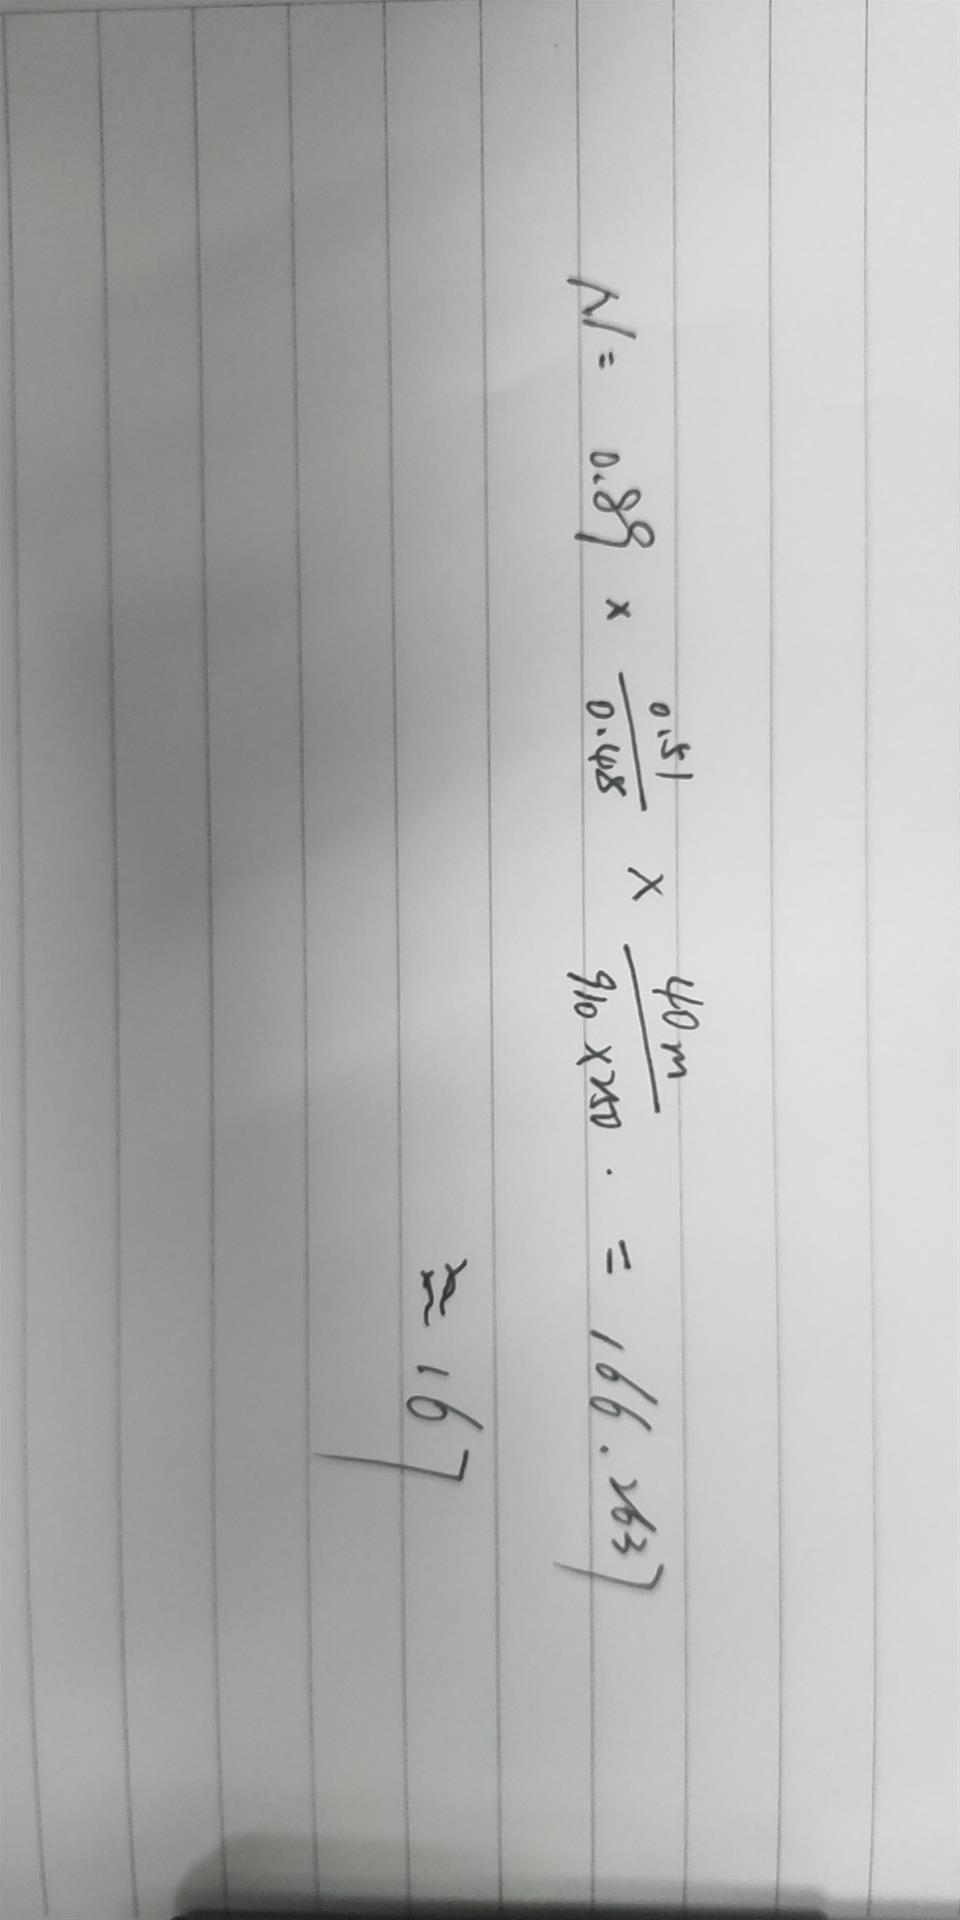 N = 0.89 × 0.51/0.48 × 40m/910×250 . = 166.2637
≈ 167